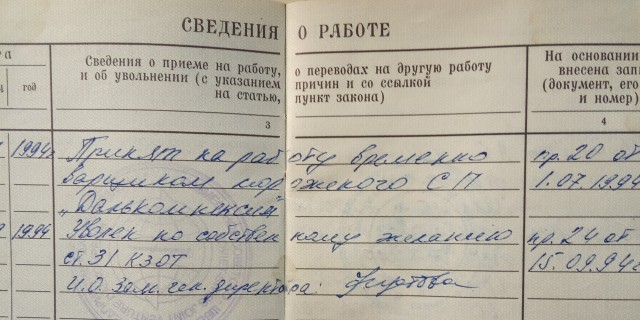 СВЕДЕНИЯ О РАБОТЕ
Сведения о приеме на работу, о переводах на другую работу
и об увольнении (с указанием причин и со ссылкой
на статью, пункт закона)
На основании
внесена зап
(документ, его
и номер)
год
3 4
1994г Принят на работу временно пр. 20 от
варщиком мороженого СП 1.07.1994
„Далькомпексим"
1994 Уволен по собственному желанию пр. 24 от
ст. 31 КЗОТ 15.09.94г
И.О. зам. ген. директора: